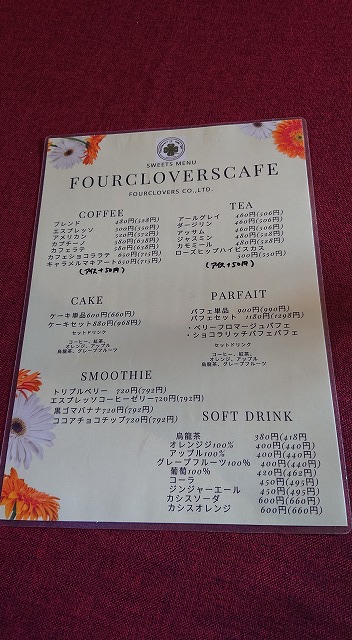 SWEETS MENU
FOURCLOVERSCAFE
FOURCLOVERS CO.,LTD.
COFFEE
ブレンド 480円(528円)
エスプレッソ 500円(550円)
アメリカン 520円(572円)
カプチーノ 580円(638円)
カフェラテ 580円(638円)
カフェショコララテ 650円(715円)
キャラメルマキアート650円(715円)
(アイス+50円)
TEA
アールグレイ 460円(506円)
ダージリン 460円(506円)
アッサム 460円(506円)
ジャスミン 480円(528円)
カモミール 480円(528円)
ローズヒップハイビスカス
500円(550円)
(アイス+50円)
CAKE
ケーキ単品600円(660円)
ケーキセット880円(968円)
セットドリンク
コーヒー, 紅茶,
オレンジ, アップル
烏龍茶, グレープフルーツ
PARFAIT
パフェ単品 900円(990円)
パフェセット 1180円(1298円)
・ベリーフロマージュパフェ
・ショコラリッチパフェパフェ
セットドリンク
コーヒー, 紅茶,
オレンジ, アップル
烏龍茶, グレープフルーツ
SMOOTHIE
トリプルベリー 720円(792円)
エスプレッソコーヒーゼリー720円(792円)
黒ゴマバナナ720円(792円)
ココアチョコチップ720円(792円)
SOFT DRINK
烏龍茶 380円(418円
オレンジジ100% 400円(440円)
アップル100% 400円(440円)
グレープフルーツ100% 400円(440円)
葡萄100% 420円(462円)
コーラ 450円(495円)
ジンジャーエール 450円(495円)
カシスソーダ 600円(660円)
カシスオレンジ 600円(660円)